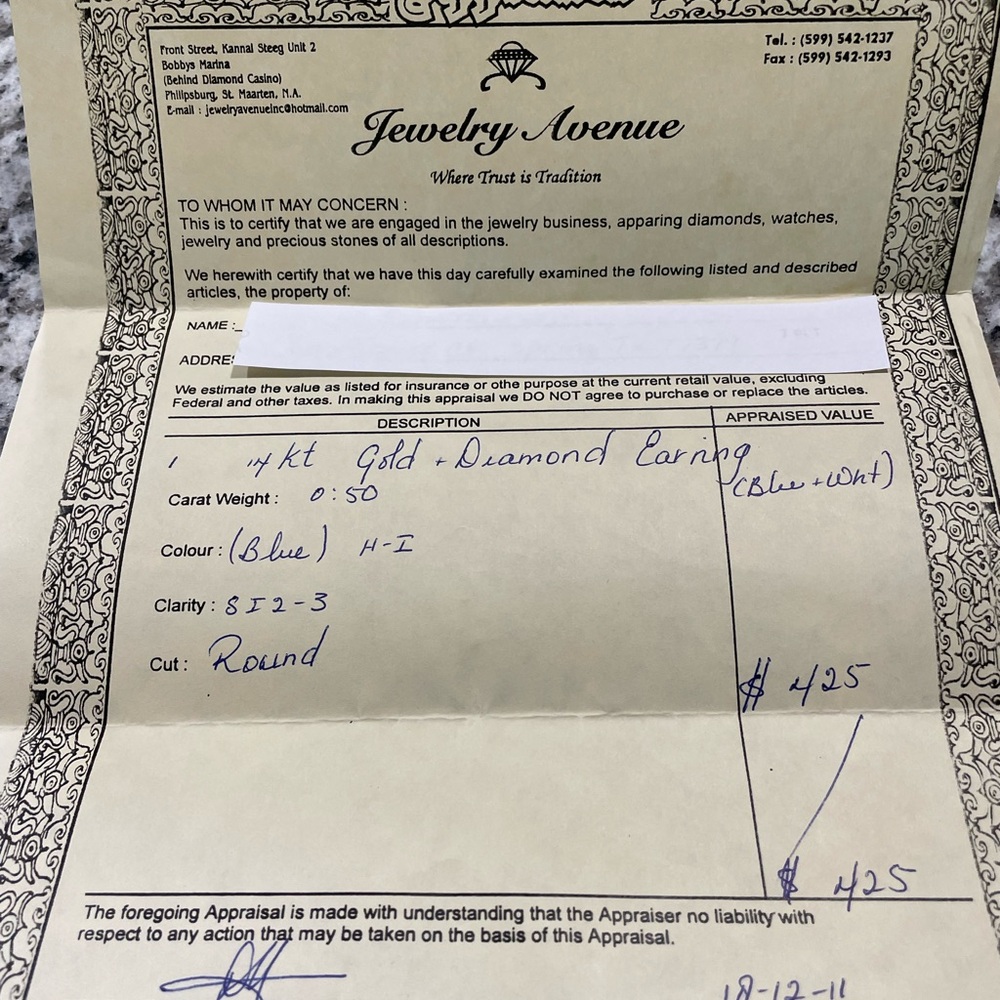 Front Street, Kannal Steeg Unit 2
Bobbys Marina
(Behind Diamond Casino)
Philipsburg, St. Maarten, N.A.
E-mail : jewelryavenueinc@hotmail.com
Tel. : (599) 542-1237
Fax : (599) 542-1293
Jewelry Avenue
Where Trust is Tradition
TO WHOM IT MAY CONCERN :
This is to certify that we are engaged in the jewelry business, apparing diamonds, watches,
jewelry and precious stones of all descriptions.
We herewith certify that we have this day carefully examined the following listed and described
articles, the property of:
NAME :
ADDRE
We estimate the value as listed for insurance or othe purpose at the current retail value, excluding
Federal and other taxes. In making this appraisal we DO NOT agree to purchase or replace the articles.
DESCRIPTION APPRAISED VALUE
1 14 kt Gold + Diamond Earring
(Blue + Wht)
Carat Weight : 0:50
Colour : (Blue) H-I
Clarity : SI2-3
Cut : Round
$ 425
$ 425
The foregoing Appraisal is made with understanding that the Appraiser no liability with
respect to any action that may be taken on the basis of this Appraisal.
18-12-11